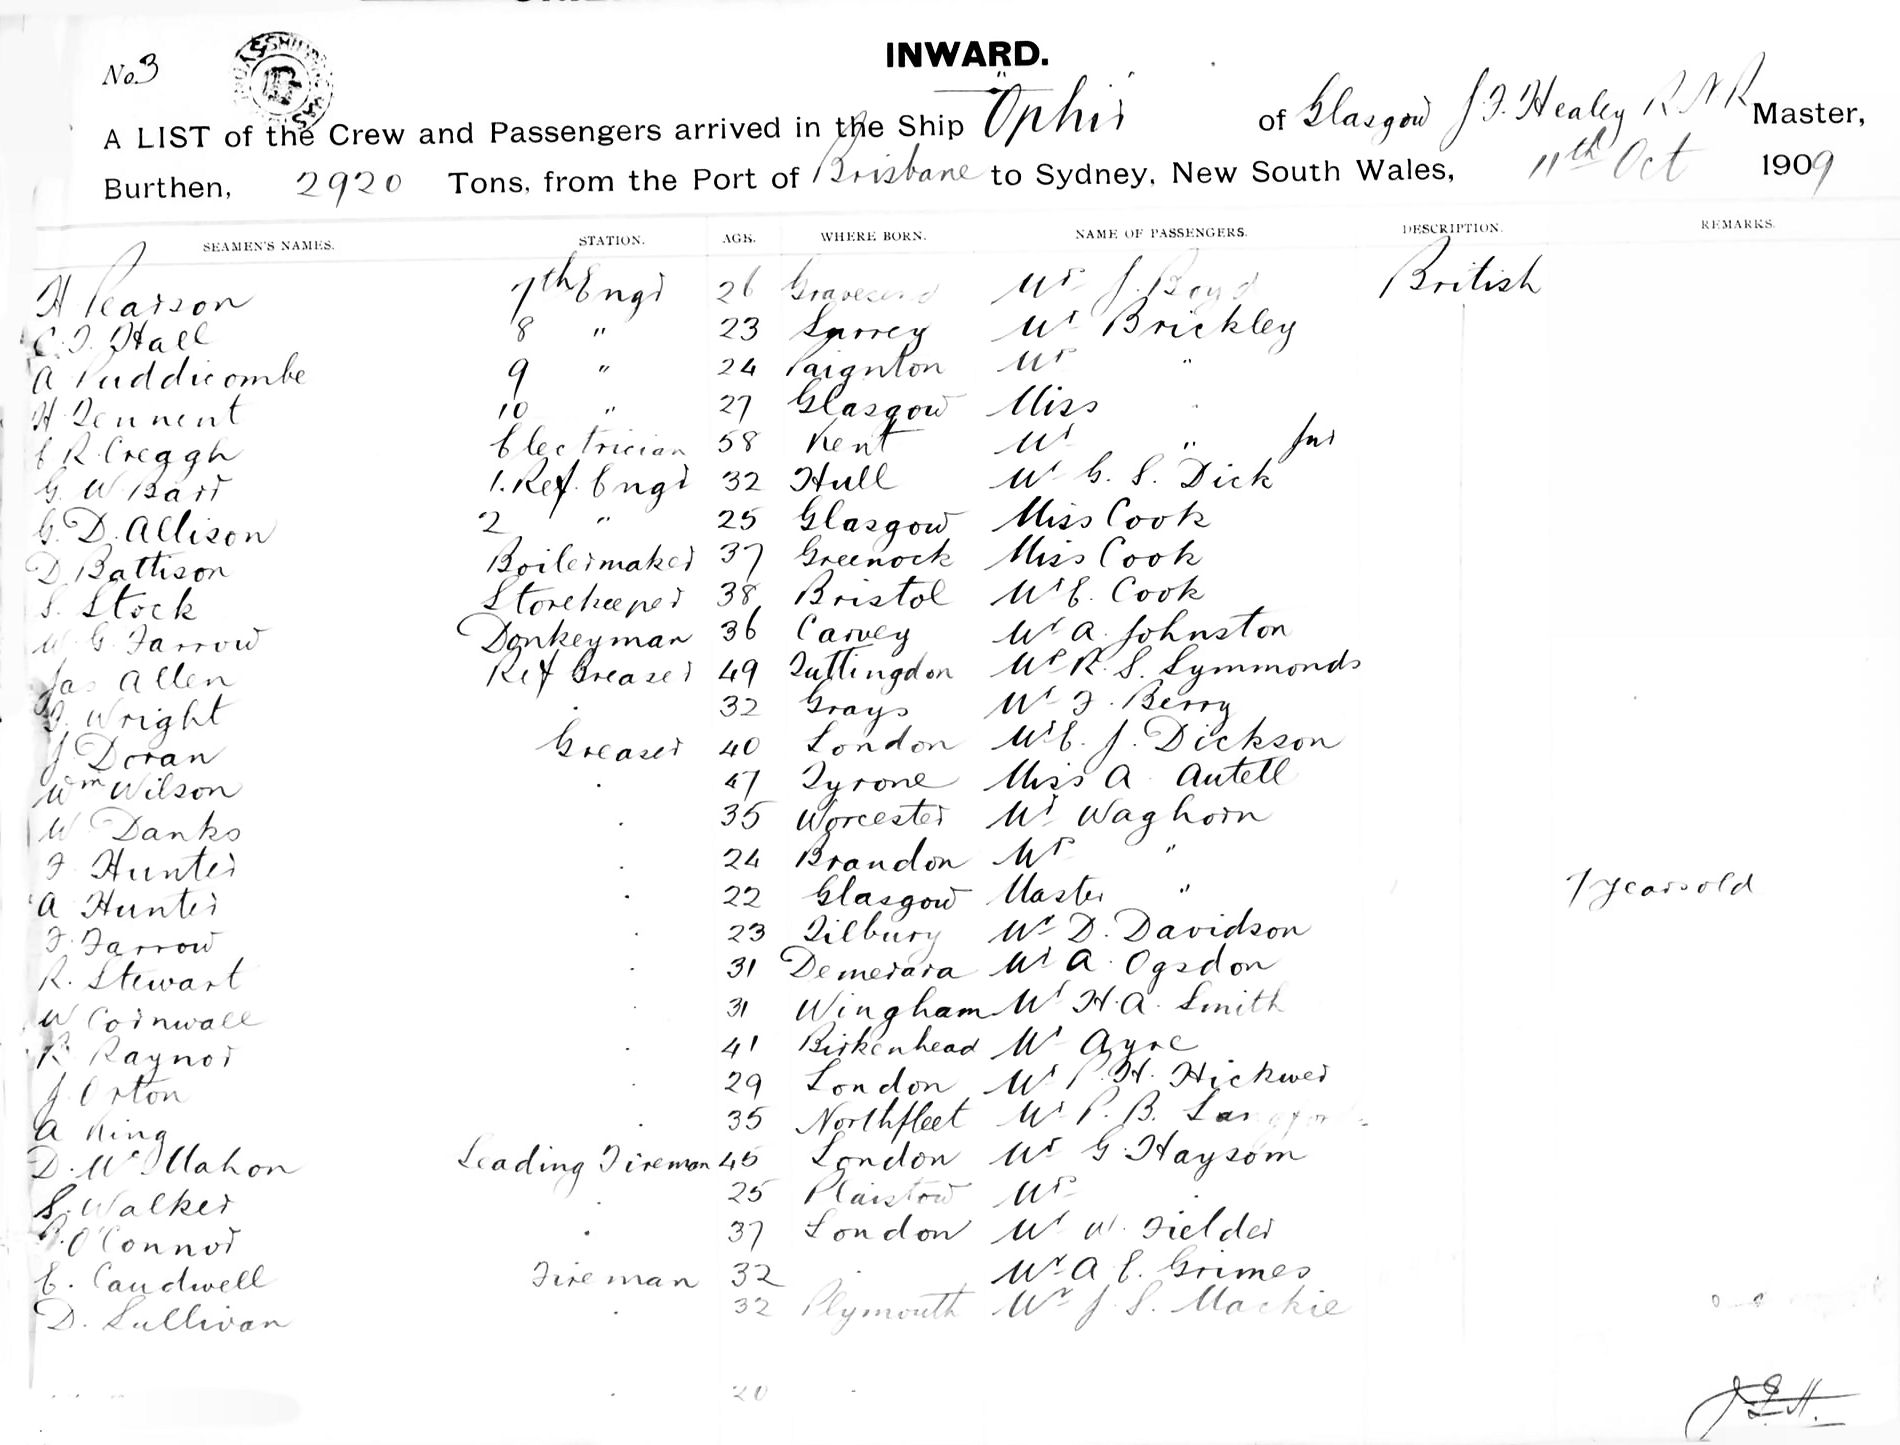 INWARD.
No. 3
A LIST of the Crew and Passengers arrived in the Ship "Ophir" of Glasgow J. F. Healey R N R Master,
Burthen, 2920 Tons, from the Port of Brisbane to Sydney, New South Wales, 11th Oct 1909
SEAMEN'S NAMES. STATION. AGE. WHERE BORN. NAME OF PASSENGERS. DESCRIPTION. REMARKS.
H Pearson 7th Engr 26 Gravesend Mr J. Boyd British
C. F. Hall 8 " 23 Surrey Mr Brickley
A Puddicombe 9 " 24 Paignton Mrs "
H Tennent 10 " 27 Glasgow Miss "
E R Creagh Electrician 58 Kent Mr " Jnr
G. W Barr 1. Ref. Engr 32 Hull Mr G. S. Dick
G. D. Allison 2 " 25 Glasgow Miss Cook
D. Battison Boilermaker 37 Greenock Miss Cook
S. Stock Storekeeper 38 Bristol Mr E. Cook
W G. Farrow Donkeyman 36 Carvey Mr A. Johnston
Jas Allen Ref Greaser 49 Tuttingdon Mr R. S. Symmonds
Wright 32 Grays Mr F. Berry
J Doran Greaser 40 London Mr E. J. Dickson
Wm Wilson 47 Tyrone Miss A. Autell
W Danks 35 Worcester Mr Waghorn
F Hunter 24 Brandon Mrs "
A Hunter 22 Glasgow Master " 7 years old
F. Farrow 23 Tilbury Mr D. Davidson
R. Stewart 31 Demerara Mr A. Ogsdon
W Cornwall 31 Wingham Mr H. A. Smith
R Raynor 41 Birkenhead Mr Ayre
J. Orton 29 London Mr P. H. Hickwer
A King 35 Northfleet Mr P. B. Langford
D. Mc Mahon Leading Fireman 45 London Mr G. Haysom
S. Walker 25 Plaistow Mrs
O'Connor 37 London Mr W. Fielder
E. Caudwell Fireman 32 Mr A E. Grimes
D. Sullivan 32 Plymouth Mr J. S. Mackie
20
J F H.